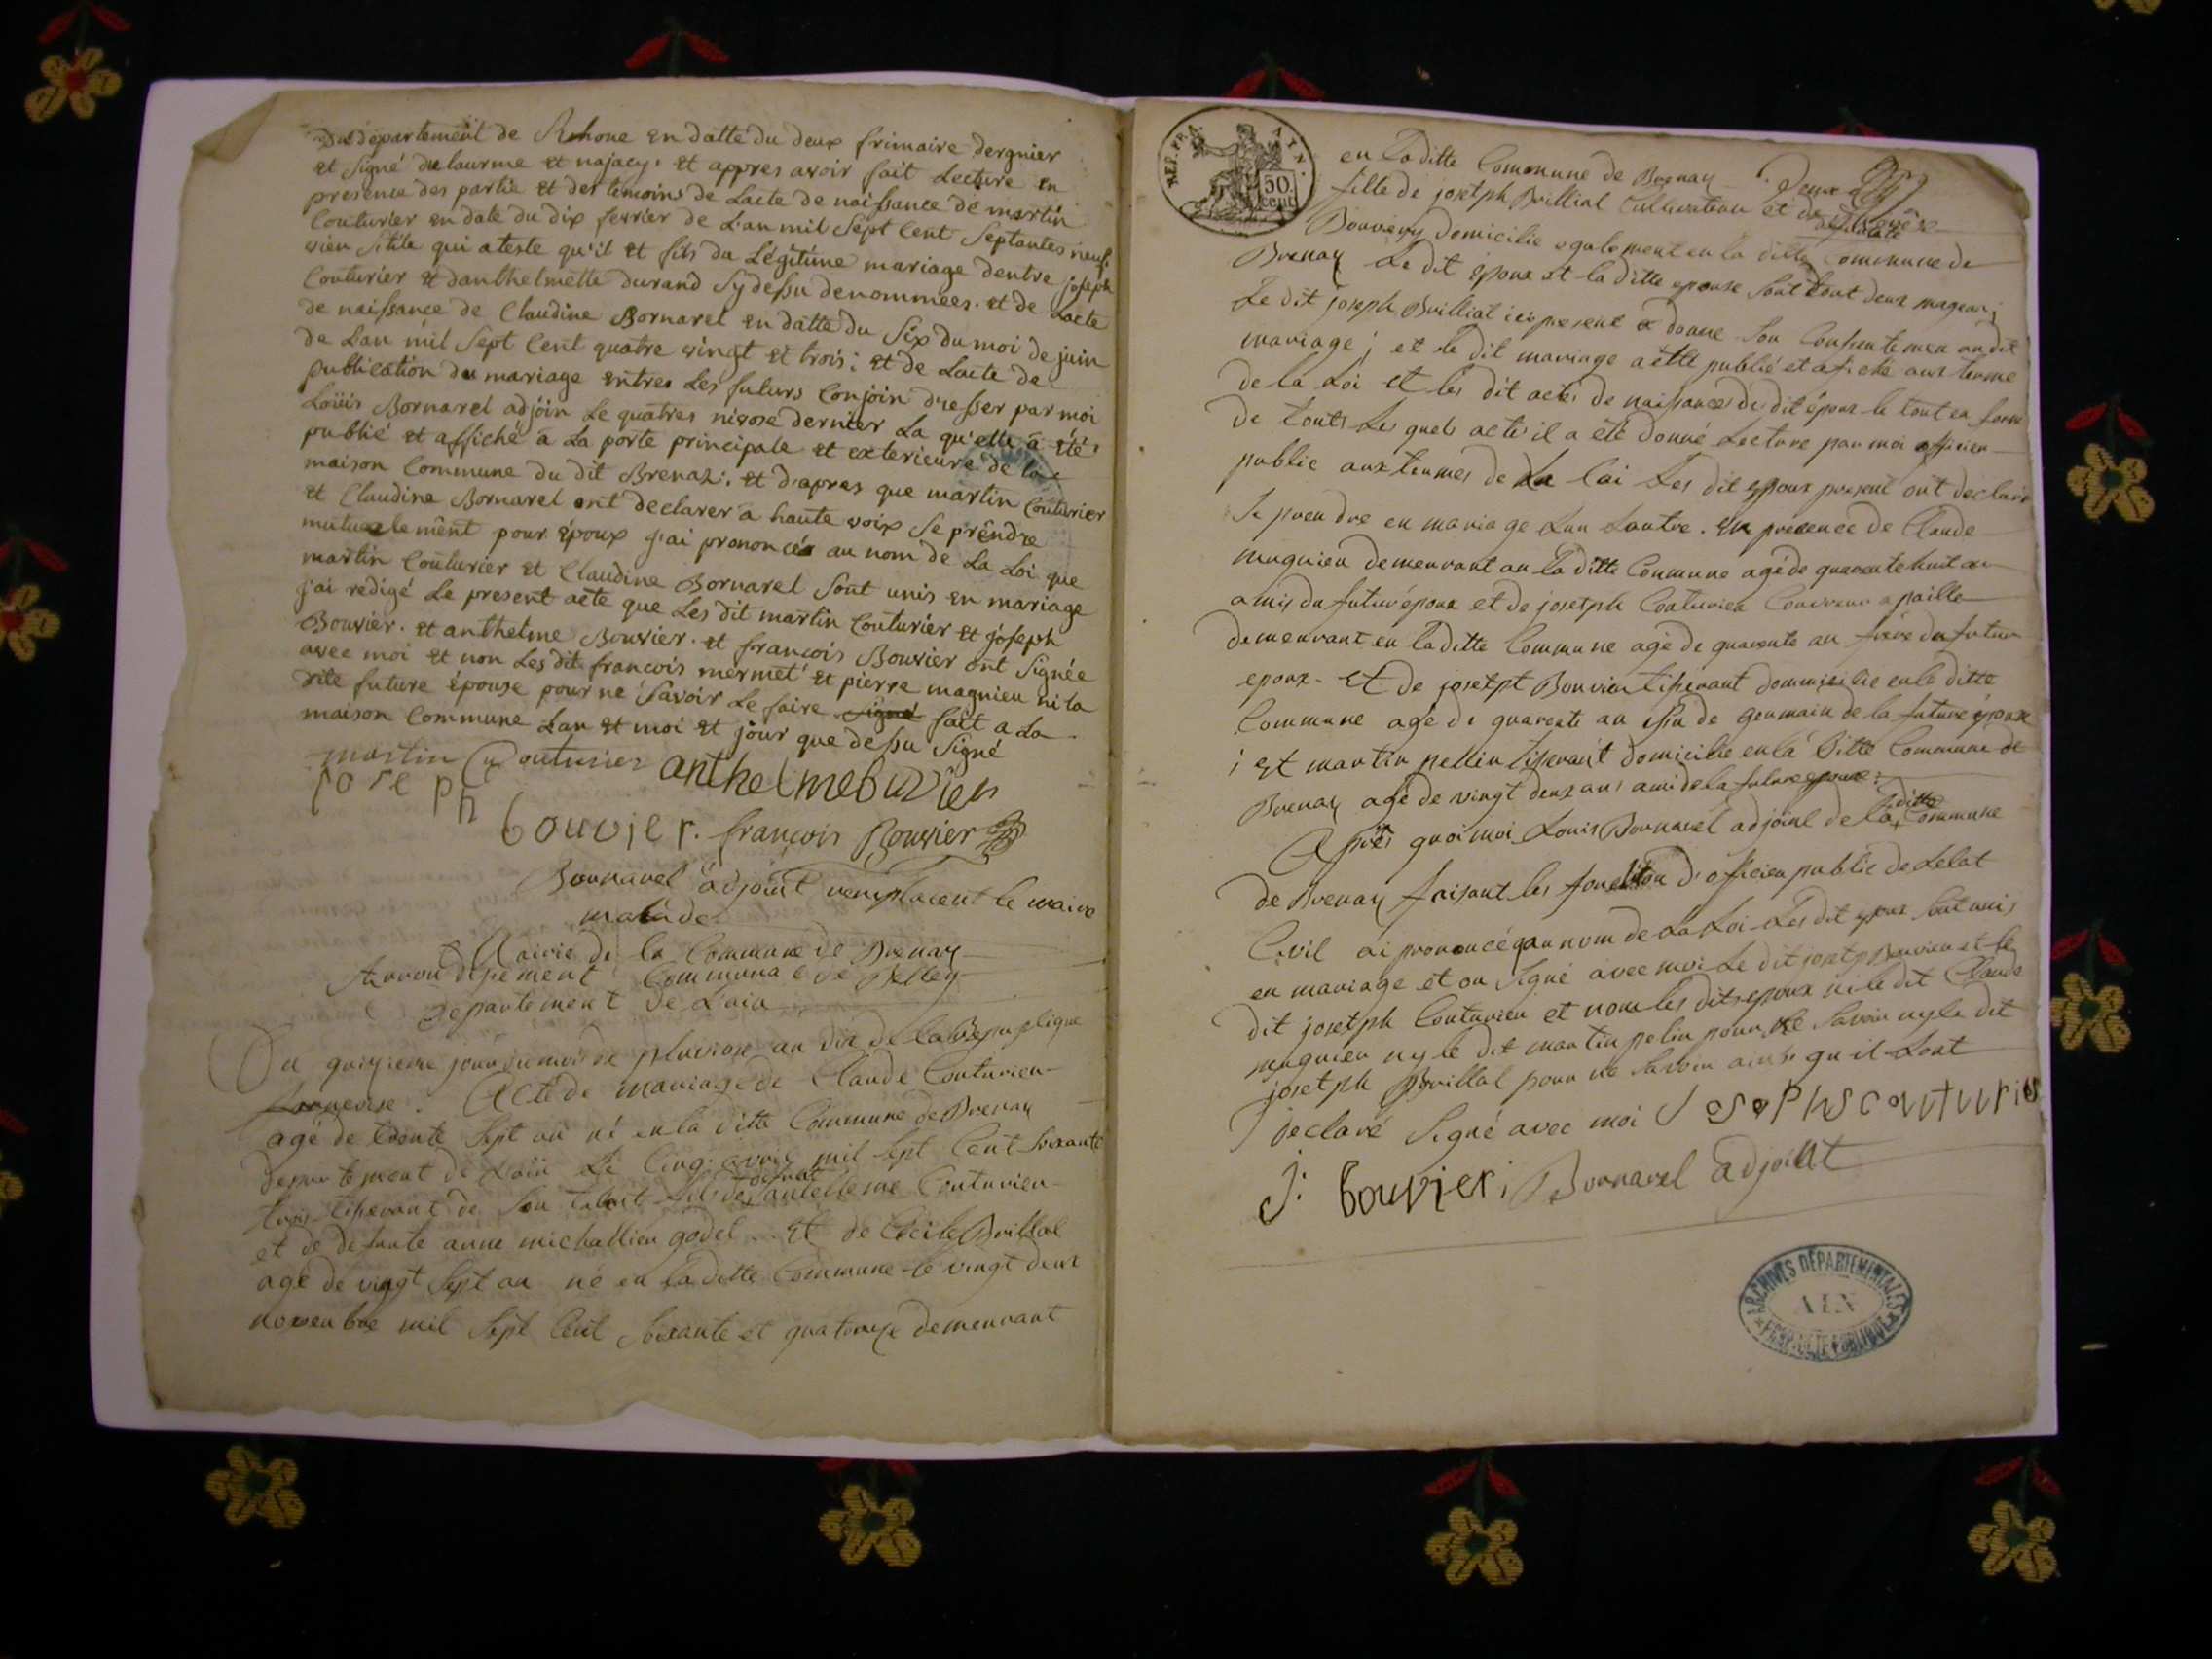 Du département de Rhone en datte du deux frimaire dergnier
et Signé delaurme et najacy. et appres avoir fait Lecture en
presence des partie et des temoins de Lacte de naissance de martin
Couturier en date du dix fevrier de L'an mil Sept Cent Septantes neuf.
vieu Stile qui ateste qu'il et fils du Légitime mariage dentre joseph
Couturier et danthelmette durand Sy dessu denommées. et de Lacte
de naissance de Claudine Bornarel en datte du Six du moi de juin
de Lan mil Sept Cent quatre vingt et trois; et de Lacte de
publication du mariage entres Les futurs Conjoin dresser par moi
Loüis Bornarel adjoin Le quatres nivose dernier La qu'elle a été
publié et affiché a La porte principale et exterieure de la
maison Commune du dit Brenaz; et d'apres que martin Couturier
et Claudine Bornarel ont declarer a haute voix Se prêndre
mutuelemênt pour époux j'ai prononcés au nom de La Loi que
martin Couturier et Claudine Bornarel Sont unis en mariage
j'ai redigé Le present acte que Les dit martin Couturier et joseph
Bouvier. et anthelme Bouvier. et francois Bouvier ont Signée
avec moi et non Les dit francois mermet et pierre magnieu ni la
dite future épouse pour ne Savoir Le faire Signé fait a La
maison Commune Lan et moi et jour que dessu Signé
martin Couturier
joseph anthelme buvier
bouvier. françois Bouvier
Bornarel adjoint remplacent le maire
malade
Mairie de la Commune de Brenay
Arrondissement Communal de Belley
Departement de Lain
Du quinzieme jour du mois de pluviose an dix de la Republique
francoise. Acte de mariage de Claude Couturier
agé de trente Sept an né en la ditte Commune de Brenay
departement de Lain Le Cinq avril mil Sept Cent Soixante
trois tisserant de Son talent fils de defunt antelleme Couturier
et de defunte anne michallieu godel. Et de Cecile Brillat
agé de vingt Sept an né en la ditte Commune le vingt deux
novembre mil Sept Cent Soixante et quatorze demeurant
REP. FRA.
AIN.
50.
cent
en la ditte Commune de Brenay
fille de josetph Brilliat Cultivateur et de
Bouvery domicilie egalement en la ditte Commune de
Brenay Le dit époux et la ditte epouse Sont tout deux mageur;
Le dit joseph Brilliat ici present a donne Son Consentemen au dit
mariage; et le dit mariage a étté publié et afiché aux terme
de la Loi et les dit actes de naissances di dit époux le tout en forme
de touts Les quels actes il a été donné Lecture par moi officier
public aux termes de La loi Les dit époux present ont declaré
Se prendre en mariage Lun Lautre. En presence de Claude
magnieu demeurant an la ditte Commune agé de quarente huit an
amis du futur époux et de josetph Couturier Couvreur a paille
demeurant en la ditte Commune agé de quarente an frere du futur
epoux. Et de josetpt Bouvier tisserant dommicilie en la ditte
Commune agé de quarente an Cousin de germain de la future épouse
; et martin pellin tisserant domicilie en la ditte Commune de
Brenay agé de vingt deux ans ami de la future epouse:
Aprés quoi moi Louis Bornarel adjoint de la ditte Commune
de Brenay faisant les fonction d'officier public de Letat
Civil ai prononcé qau nom de La Loi Les dit epoux Sont unis
en mariage et on Signé avec moi Le dit josetp Bouvier et le
dit josetph Couturier et nom les dits epoux ni le dit Claude
magnieu ny le dit martin pelin pour ne Savoir ny le dit
josetph Brillat pour ne Savoir ainsi qu'il Lont
declaré Signé avec moi Josephs couturier
J: bouvier; Bornarel adjoint
ARCHIVES DÉPARTEMENTALES
AIN
PROPRIÉTÉ PUBLIQUE